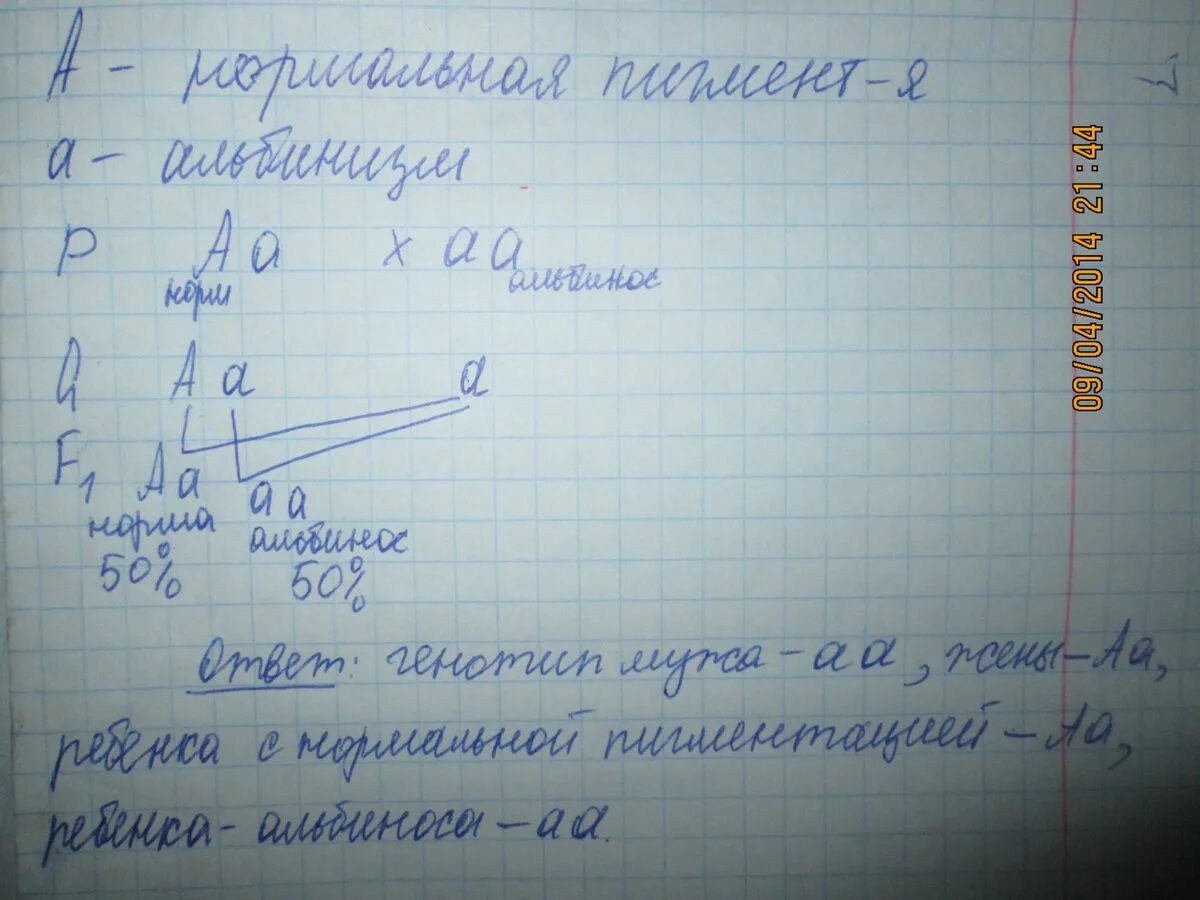 А – нормальная пигмент-я
а – альбинизм
Р Аа х аа
норм альбинос
G А а а
F1 Аа аа
норма альбинос
50% 50%
Ответ: генотип мужа – аа, жены – Аа,
ребенка с нормальной пигментацией – Аа,
ребенка - альбиноса – аа.
09/04/2014 21:44